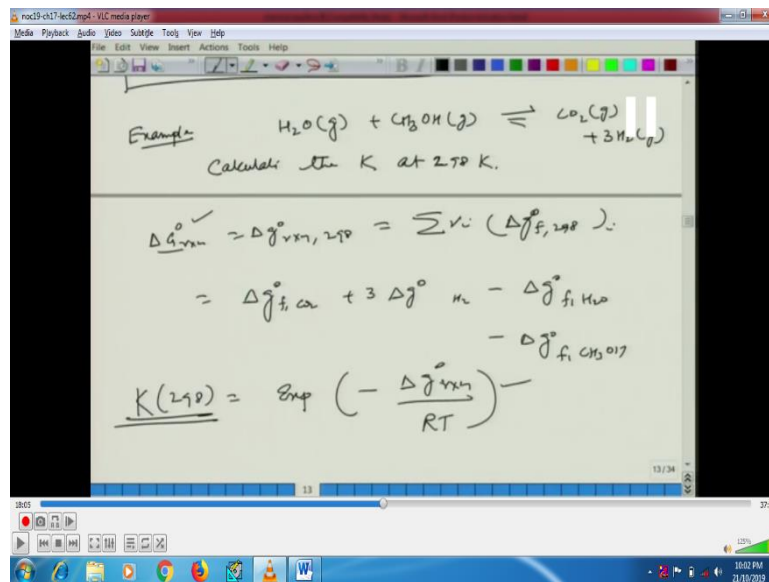 noc19-ch17-lec62.mp4 - VLC media player
Media Playback Audio Video Subtitle Tools View Help
File Edit View Insert Actions Tools Help
Example H₂O(g) + CH₃OH(g) ⇌ CO₂(g)
+ 3H₂(g)
Calculate the K at 298 K.
ΔG°rxn ✓ = Δg°rxn, 298 = Σ νi (Δg°f, 298)i
= Δg°f, CO₂ + 3 Δg° H₂ - Δg°f, H₂O
- Δg°f, CH₃OH
K(298) = Exp (- Δg°rxn / RT)
13/34
13
18:05
37:
125%
10:02 PM
21/10/2019